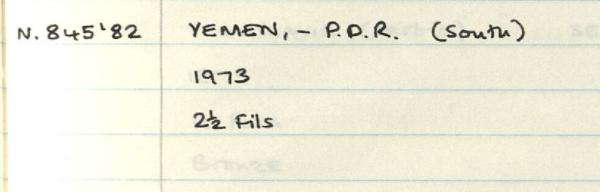 N. 845'82 YEMEN, - P.D.R. (South)
1973
2½ Fils
Bronze